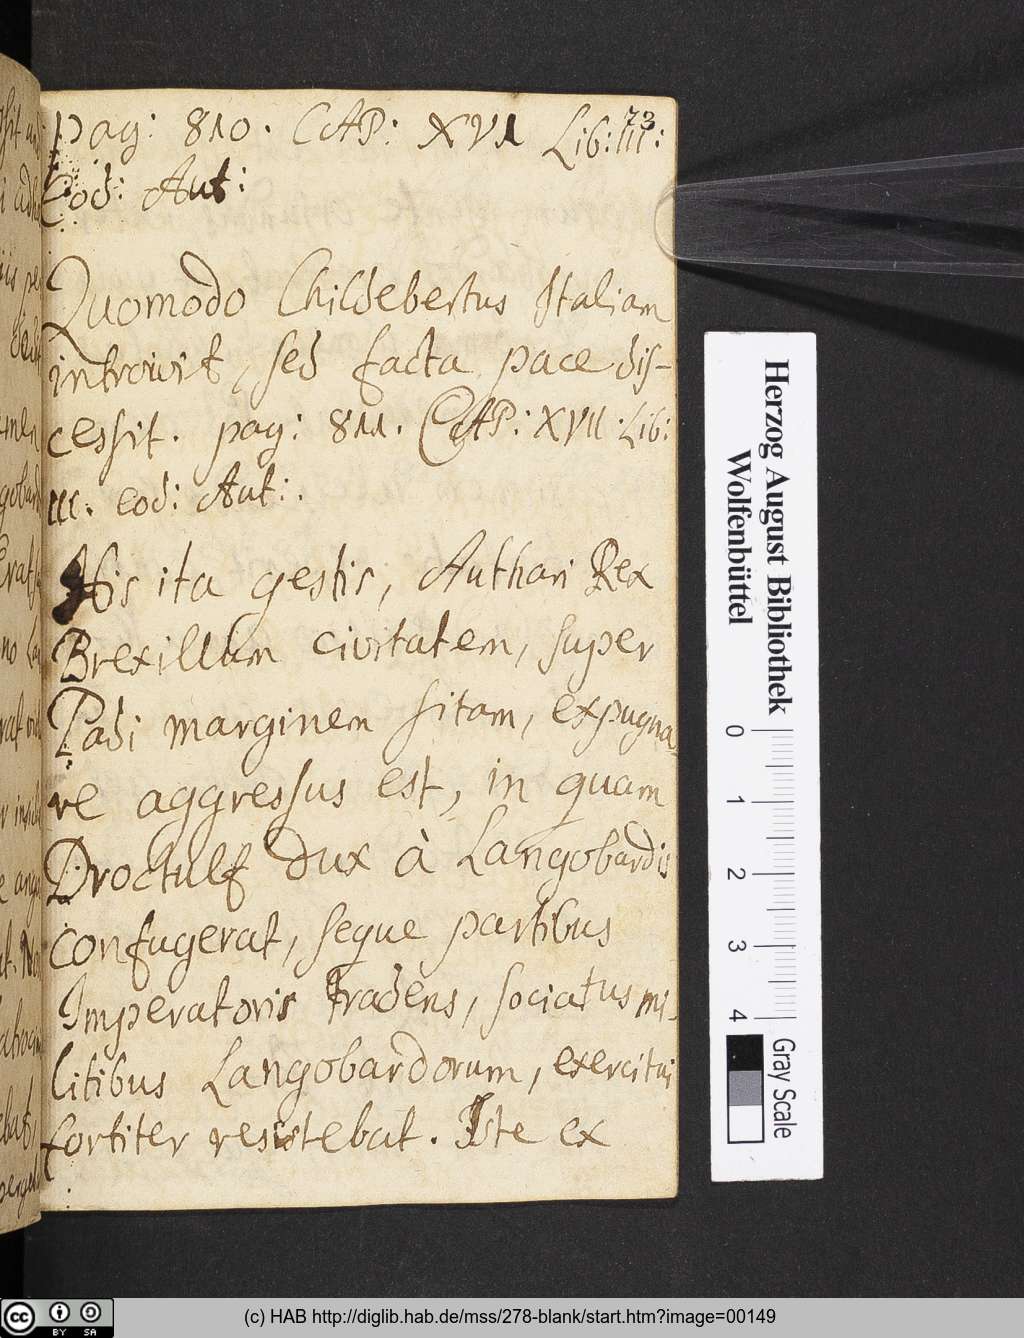 73
pag: 810. CAP: XVI Lib: III:
Eod: Aut:
Quomodo Childebertus Italiam
introivit, sed facta pace dis-
cessit. pag: 811. CAP: XVII. Lib:
III. eod: Aut:.
His ita gestis, Authari Rex
Brexillum civitatem, super
Padi marginem sitam, expugna
re aggressus est, in quam
Droctulf dux à Langobardis
confugerat, seque partibus
Imperatoris tradens, sociatus mi-
litibus Langobardorum, exercitui
fortiter resistebat. Iste ex
Herzog August Bibliothek
Wolfenbüttel
0 1 2 3 4
Gray Scale
cc BY SA
(c) HAB http://diglib.hab.de/mss/278-blank/start.htm?image=00149